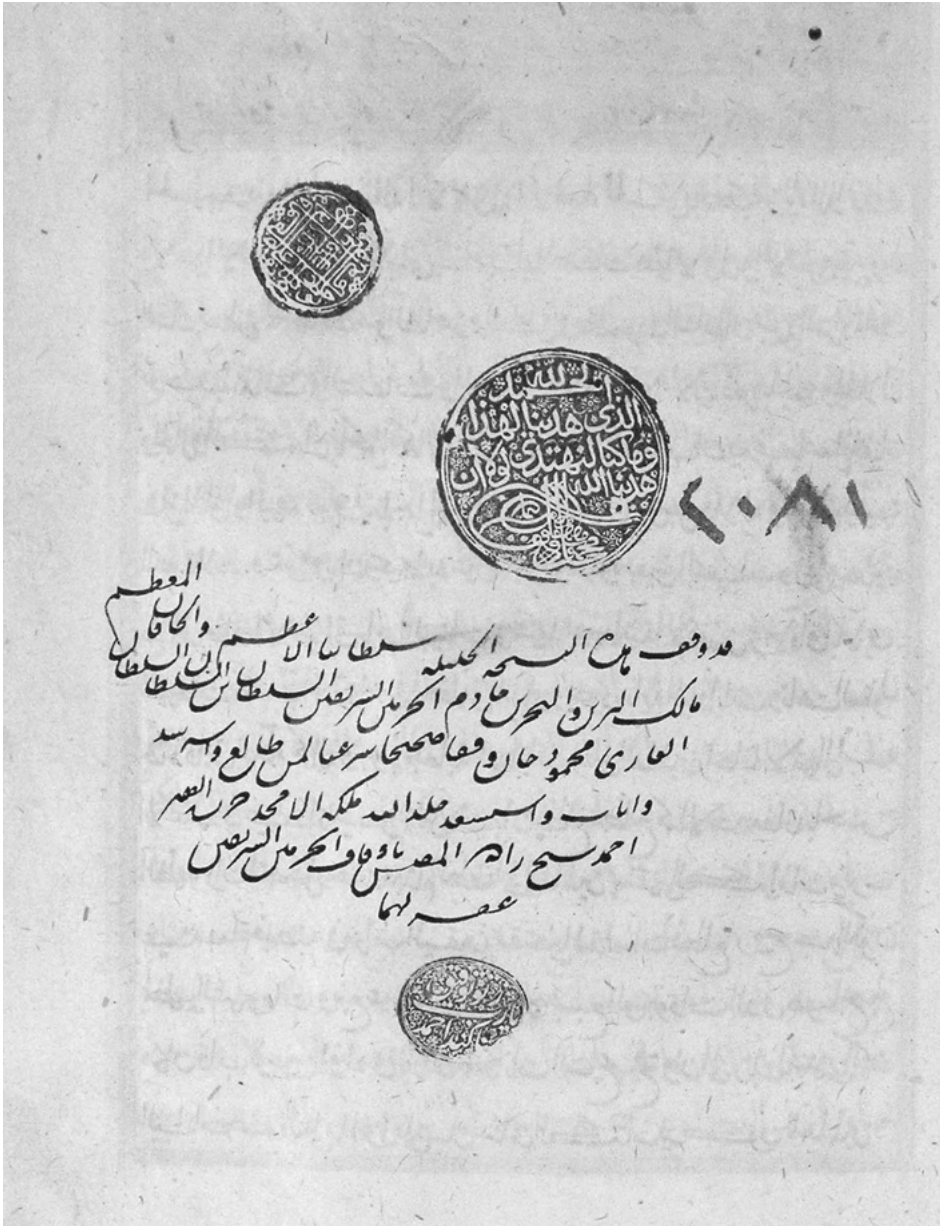 الحمد لله
الذى هدينا لهذا
وما كنا لنهتدى لولا ان
هدينا الله
٢٠٨١
قد وقف هذه النسخة الجليلة سلطاننا الاعظم والخاقان المعظم
مالك البرين والبحرين خادم الحرمين الشريفين السلطان بن السلطان بن السلطان
الغازى محمود خان وقفا صحيحا شرعيا لمن طالع واسترشد
واناب واستسعد خلد الله ملكه الامجد حرره الفقير
احمد شيخ زاده المفتش باوقاف الحرمين الشريفين
غفر لهما